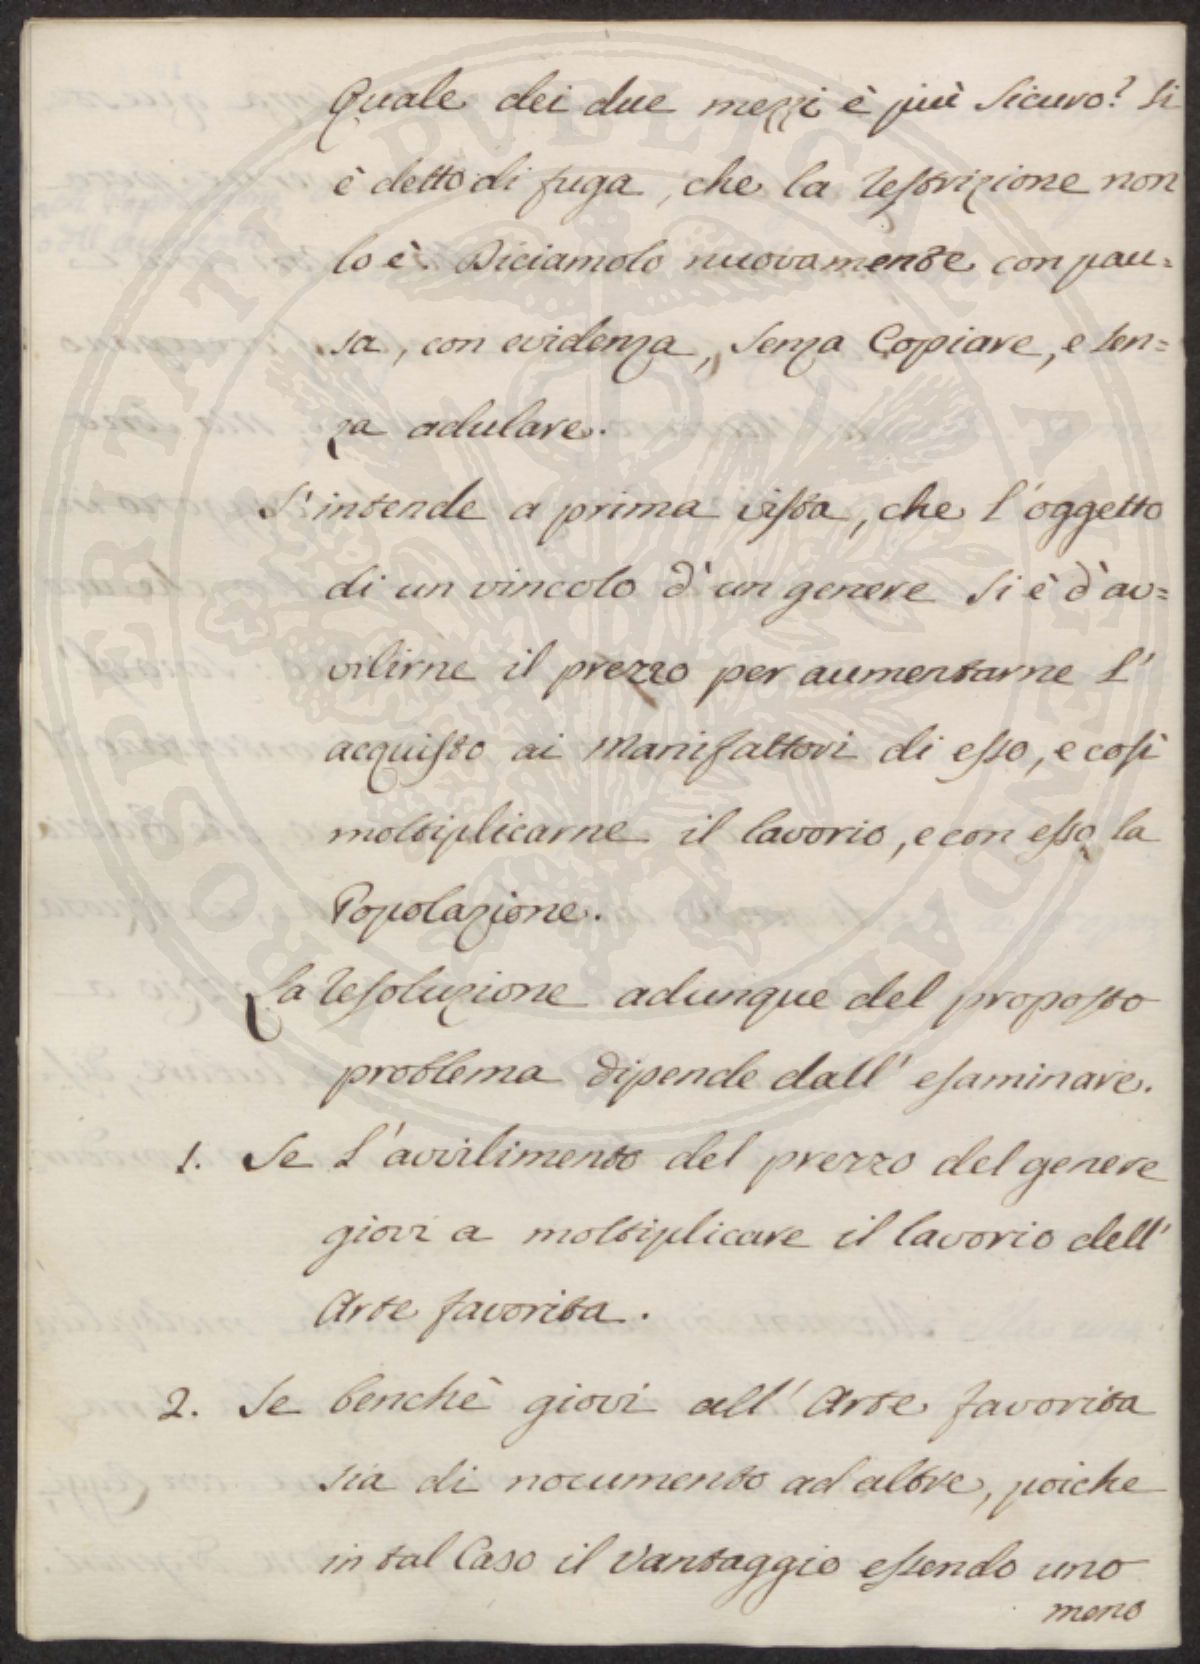 Quale dei due mezzi è più sicuro? Si
è detto di fuga, che la restrizione non
lo è. Diciamolo nuovamente con pau=
sa, con evidenza, senza Copiare, e sen=
za adulare.
S'intende a prima vista, che l'oggetto
di un vincolo d'un genere si è d'av=
vilirne il prezzo per aumentarne l'
acquisto ai Manifattori di esso, e così
moltiplicarne il lavorio, e con esso la
Popolazione.
La resoluzione adunque del proposto
problema dipende dall' esaminare.
1. Se l'avvilimento del prezzo del genere
giovi a moltiplicare il lavorio dell'
Arte favorita.
2. Se benchè giovi all' Arte favorita
sia di nocumento ad altre, poiche
in tal Caso il Vantaggio essendo uno
meno
PROSPERITATI PUBLICAE AUGENDAE